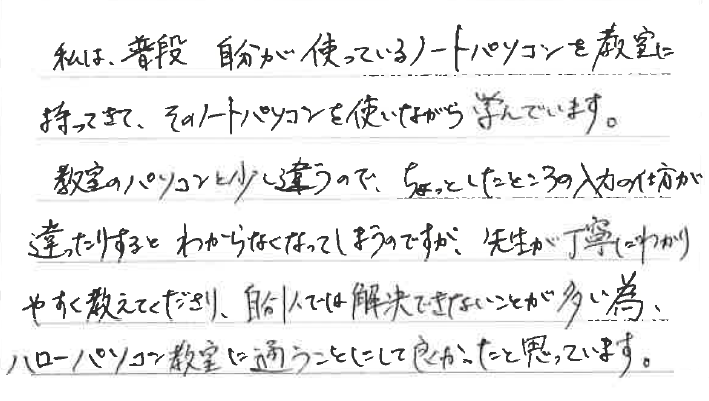 私は、普段 自分が使っているノートパソコンを教室に
持ってきて、そのノートパソコンを使いながら学んでいます。
教室のパソコンと少し違うので、ちょっとしたところの入力の仕方が
違ったりするとわからなくなってしまうのですが、先生が丁寧にわかり
やすく教えてくださり、自分1人では解決できないことが多い為、
ハローパソコン教室に通うことにして良かったと思っています。